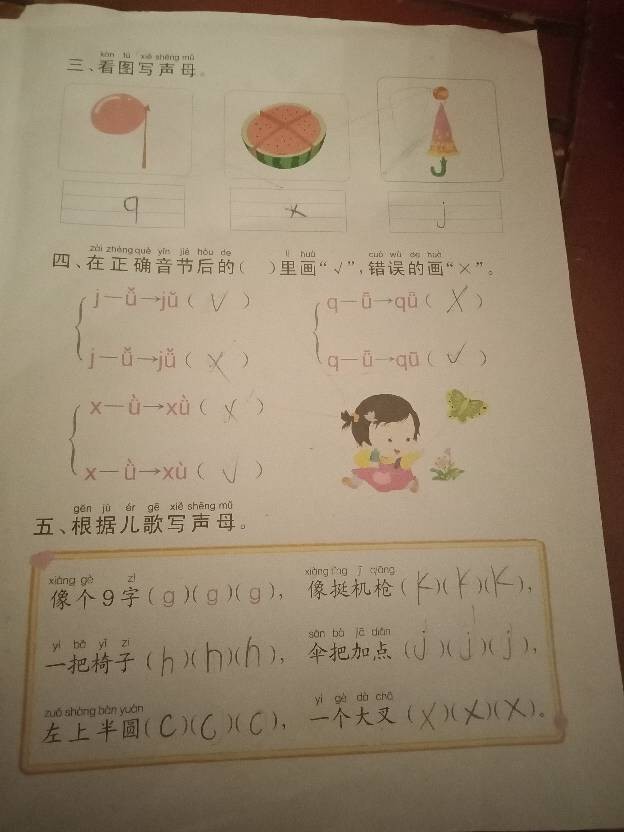 kàn tú xiě shēng mǔ
三、看图写声母。
q x j
zài zhèng què yīn jié hòu de lǐ huà cuò wù de huà
四、在正确音节后的( )里画“√”,错误的画“×”。
j—ǚ→jǔ(√) q—ū→qǖ(×)
j—ǚ→jǚ(×) q—ǖ→qū(√)
x—ǜ→xǜ(×)
x—ǜ→xù(√)
gēn jù ér gē xiě shēng mǔ
五、根据儿歌写声母。
xiàng gè zì xiàng tǐng jī qiāng
像个9字(g)(g)(g),像挺机枪(k)(k)(k),
yì bǎ yǐ zi sǎn bǎ jiā diǎn
一把椅子(h)(h)(h),伞把加点(j)(j)(j),
zuǒ shàng bàn yuán yí gè dà chā
左上半圆(c)(c)(c),一个大叉(x)(x)(x)。